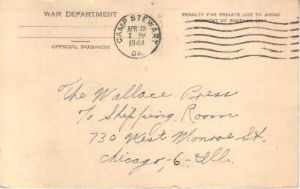 WAR DEPARTMENT
OFFICIAL BUSINESS
CAMP STEWART
APR 13
7 PM
1944
GA.
PENALTY FOR PRIVATE USE TO AVOID
PAYMENT OF POSTAGE
The Wallace Press
To Shipping Room
730 West Monroe St.
Chicago, -6- Ill.